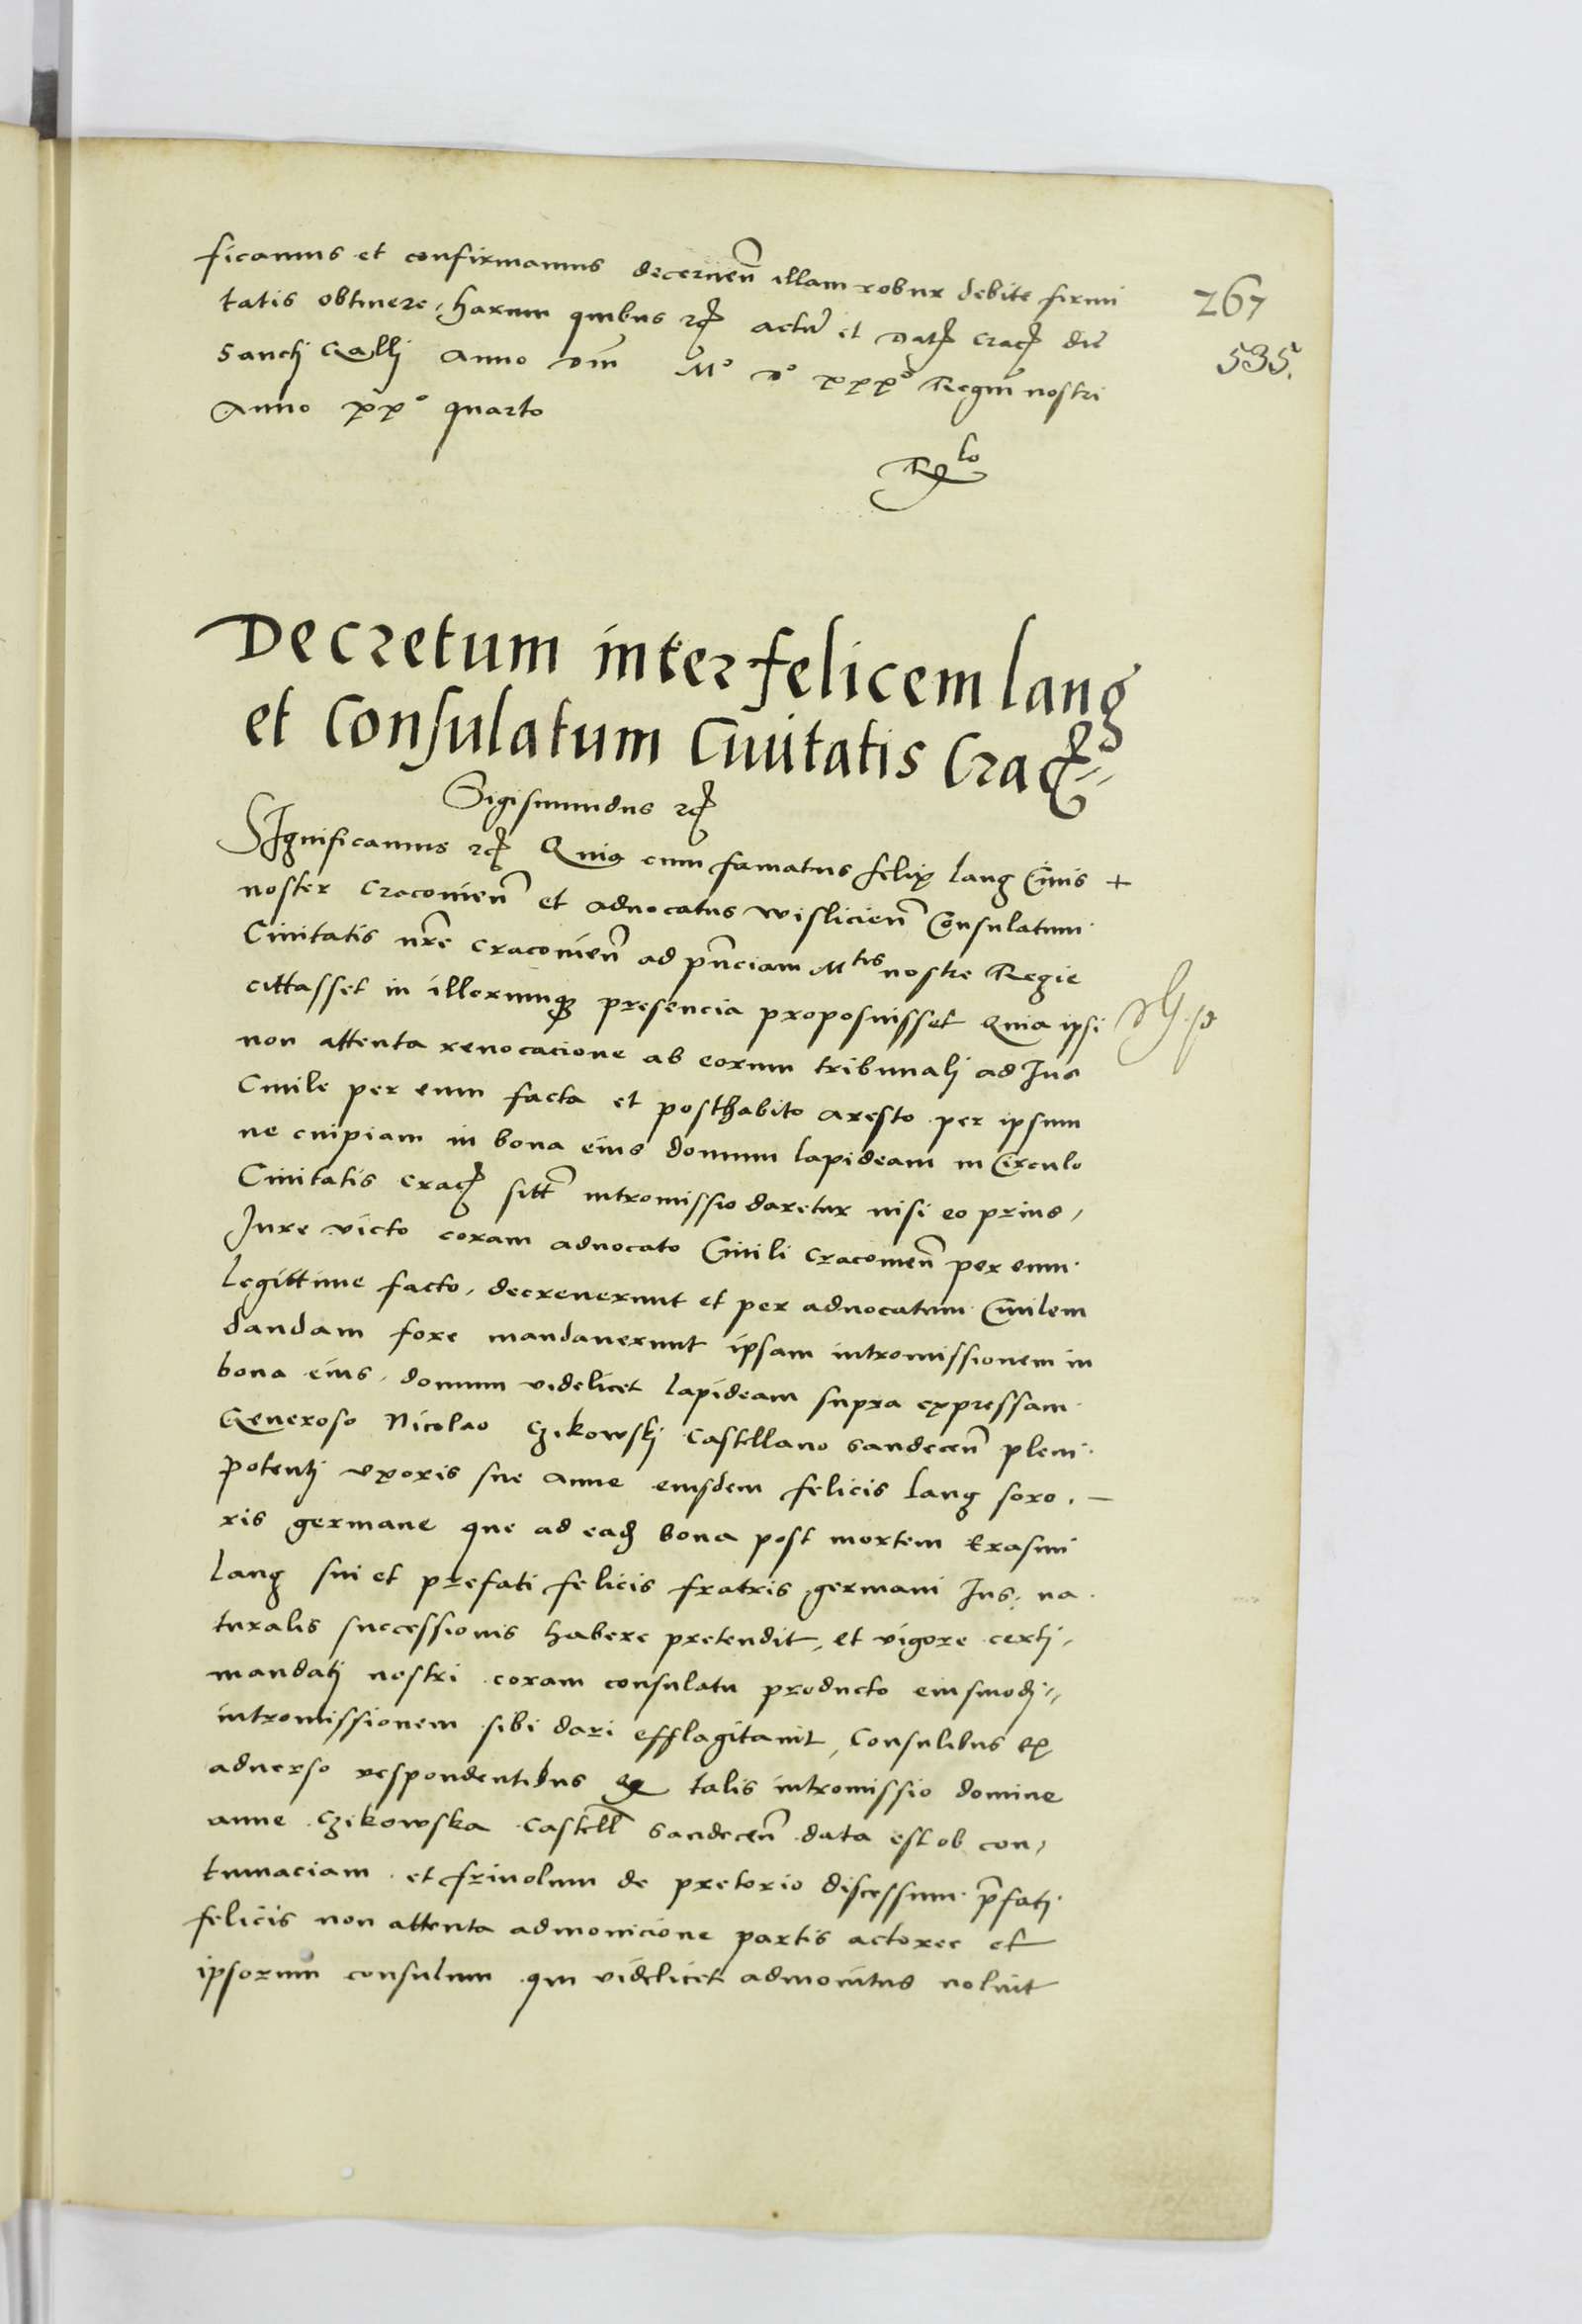 ficamus et confirmamus decernen illam robur debite firmi
267
tatis obtinere, harum quibus rc actu et Dat crac die
535.
Sancti Galli Anno dni Mº dº xxxº Regni nostri
Anno xxº quarto
Decretum inter felicem lang
et Consulatum Civitatis Crac
Sigismundus rc
Significamus rc Quia cum famatus felix lang Civis +
noster Cracovien et advocatus wislicien Consulatum
Civitatis nre Cracovien ad pnciam Mtis nostre Regie
cittasset in illorumque presencia proposuisset Quia ipsi
non attenta revocacione ab eorum tribunalj ad Jus
Civile per eum facta et posthabito aresto per ipsum
ne cuipiam in bona eius domum lapideam in Circulo
Civitatis Crac sitt intromissio daretur nisi eo prius,
Jure victo coram advocato Civili Cracovien per eum
legittime facto, decreverunt et per advocatum Civilem
dandam fore mandaverunt ipsam intromissionem in
bona eius, domum videlicet lapideam supra expressam
Generoso Nicolao Czikowskj Castellano Sandecen pleni
potentj uxoris sue Anne eiusdem felicis lang soro. —
ris germane que ad ead bona post mortem Erasmi
lang sui et prefati felicis fratris germani Jus na
turalis successionis habere pretendit, et vigore certj,
mandatj nostri coram consulatu producto eiusmodj
intromissionem sibi dari efflagitavit, Consulibus ex
adverso respondentibus talis intromissio domine
anne Czikowska Castell Sandecen data est ob con,
tumaciam et frivolum de pretorio discessum pfatj
felicis non attenta admonicione partis actoree et
ipsorum consulum qui videlicet admonitus noluit